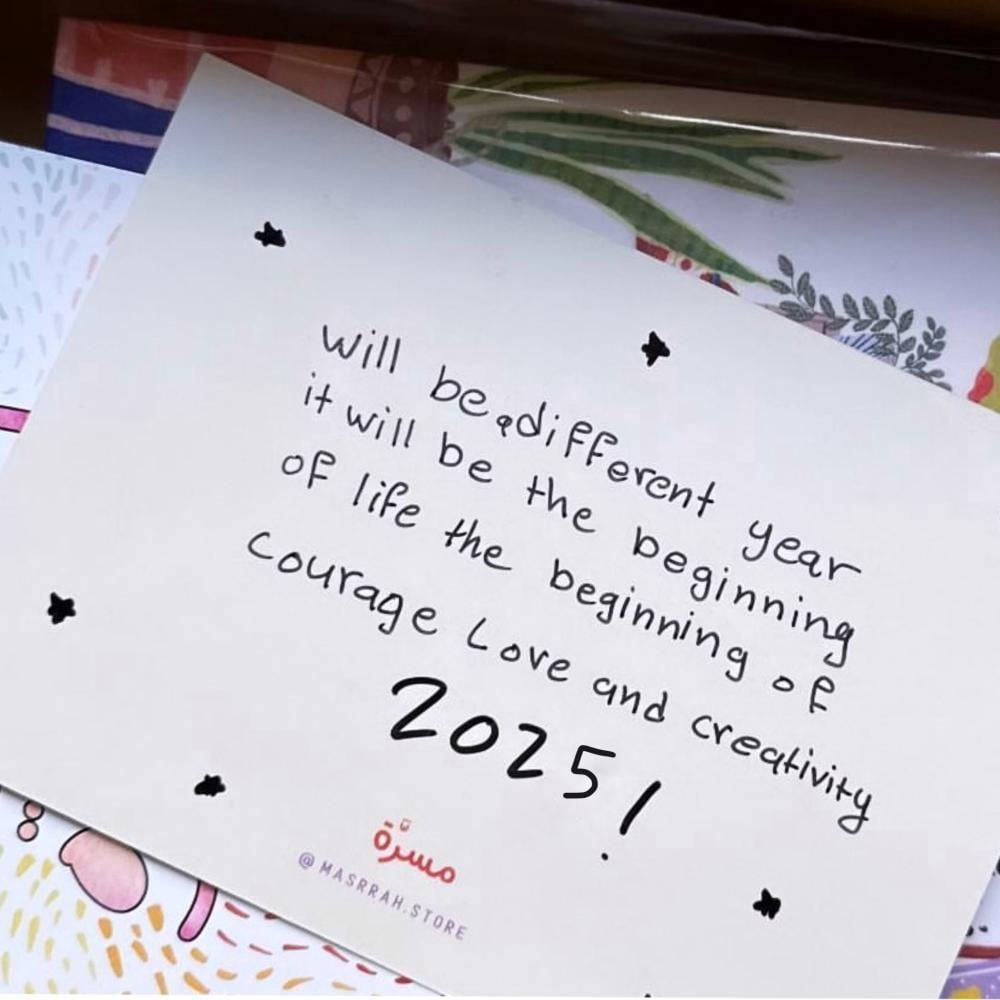 will be a different year
it will be the beginning
of life the beginning of
courage Love and creativity
2025!
مسرّة
@MASRRAH.STORE